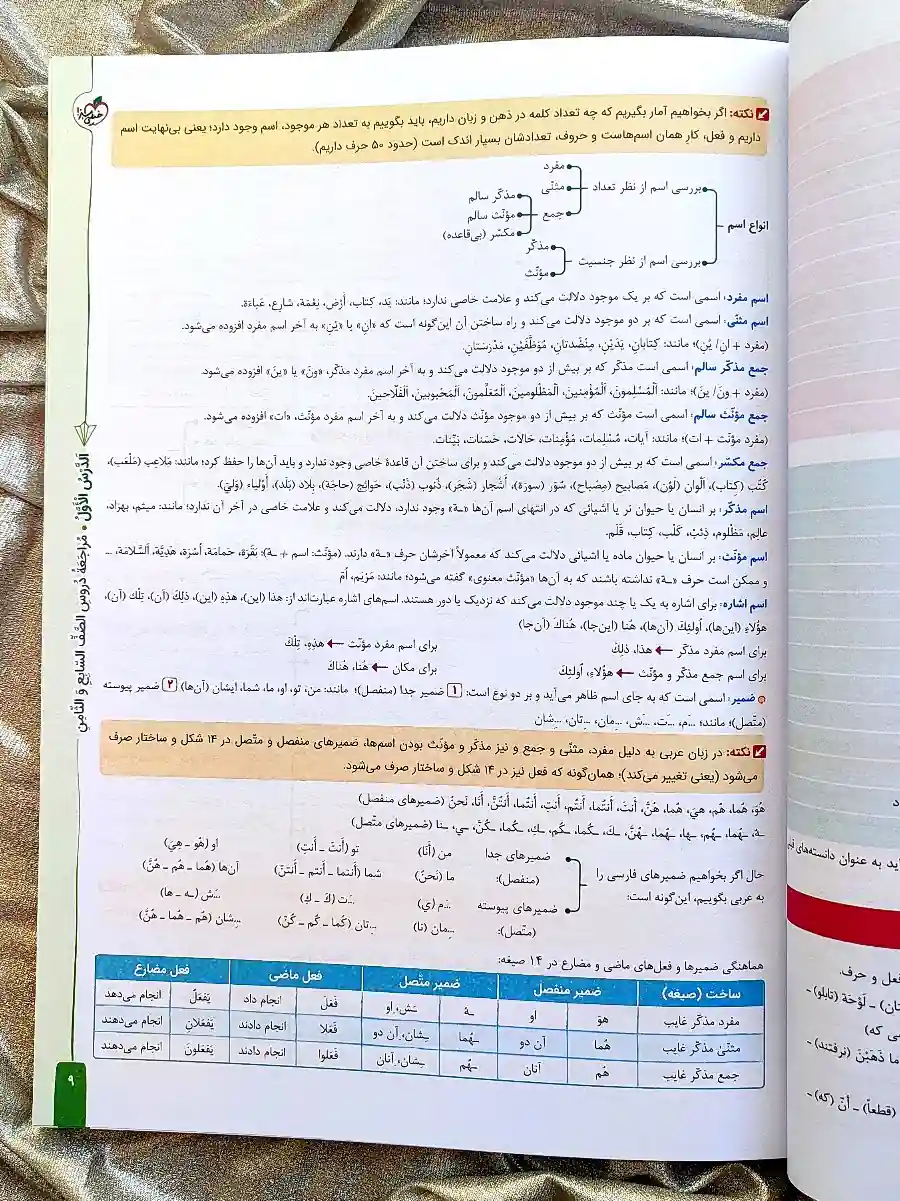 نکته: اگر بخواهیم آمار بگیریم که چه تعداد کلمه در ذهن و زبان داریم، باید بگوییم به تعداد هر موجود، اسم وجود دارد؛ یعنی بی‌نهایت اسم
داریم و فعل، کارِ همان اسم‌هاست و حروف، تعدادشان بسیار اندک است (حدود ۵۰ حرف داریم).
انواع اسم
بررسی اسم از نظر تعداد
مفرد
مثنّی
جمع
مذکّر سالم
مؤنّث سالم
مکسّر (بی‌قاعده)
بررسی اسم از نظر جنسیت
مذکّر
مؤنّث
اسم مفرد: اسمی است که بر یک موجود دلالت می‌کند و علامت خاصی ندارد؛ مانند: یَد، کِتاب، أَرْض، نِعْمَة، شارِع، عَباءَة.
اسم مثنّی: اسمی است که بر دو موجود دلالت می‌کند و راه ساختن آن این‌گونه است که «انِ» یا «یْنِ» به آخر اسم مفرد افزوده می‌شود.
(مفرد + انِ/ یْنِ)؛ مانند: کِتابانِ، یَدَیْنِ، مِنْضَدتانِ، مُوَظَّفَیْنِ، مَدْرَسَتانِ.
جمع مذکّر سالم: اسمی است مذکّر که بر بیش از دو موجود دلالت می‌کند و به آخر اسم مفرد مذکّر، «ونَ» یا «ینَ» افزوده می‌شود.
(مفرد + ونَ/ ینَ)؛ مانند: اَلْمُسْلِمونَ، اَلْمُؤْمِنینَ، اَلْمَظْلومینَ، اَلْمُعَلِّمونَ، اَلْمَحْبوبینَ، اَلْفَلّاحینَ.
جمع مؤنّث سالم: اسمی است مؤنّث که بر بیش از دو موجود مؤنّث دلالت می‌کند و به آخر اسم مفرد مؤنّث، «ات» افزوده می‌شود.
(مفرد مؤنّث + ات)؛ مانند: آیات، مُسْلِمات، مُؤْمِنات، حالات، حَسَنات، بَیِّنات.
جمع مکسّر: اسمی است که بر بیش از دو موجود دلالت می‌کند و برای ساختن آن قاعدهٔ خاصی وجود ندارد و باید آن‌ها را حفظ کرد؛ مانند: مَلاعِب (مَلْعَب)،
کُتُب (کتاب)، أَلْوان (لَوْن)، مَصابیح (مِصباح)، سُوَر (سورَة)، أَشْجار (شَجَر)، ذُنوب (ذَنْب)، حَوائِج (حاجَة)، بِلاد (بَلَد)، أَوْلیاء (وَلیّ).
اسم مذکّر: بر انسان یا حیوان نر یا اشیائی که در انتهای اسم آن‌ها «ـة» وجود ندارد، دلالت می‌کند و علامت خاصی در آخر آن ندارد؛ مانند: میثم، بهزاد،
عالِم، مَظْلوم، ذِئْب، کَلْب، کِتاب، قَلَم.
اسم مؤنّث: بر انسان یا حیوان ماده یا اشیائی دلالت می‌کند که معمولاً آخرشان حرف «ـة» دارند. (مؤنّث: اسم + ـة)؛ بَقَرَة، حَمامَة، أُسْرَة، هَدِیَّة، اَلسَّلامَة، ...
و ممکن است حرف «ـة» نداشته باشند که به آن‌ها «مؤنّث معنوی» گفته می‌شود؛ مانند: مَرْیَم، اُمّ
اسم اشاره: برای اشاره به یک یا چند موجود دلالت می‌کند که نزدیک یا دور هستند. اسم‌های اشاره عبارت‌اند از: هذا (این)، هذِهِ (این)، ذلِكَ (آن)، تِلْكَ (آن)،
هؤُلاءِ (این‌ها)، أُولئِكَ (آن‌ها)، هُنا (این‌جا)، هُناكَ (آن‌جا)
برای اسم مفرد مذکّر ← هذا، ذلِكَ
برای اسم مفرد مؤنّث ← هذِهِ، تِلْكَ
برای اسم جمع مذکّر و مؤنّث ← هؤُلاءِ، أُولئِكَ
برای مکان ← هُنا، هُناكَ
ضمیر: اسمی است که به جای اسم ظاهر می‌آید و بر دو نوع است: ۱ ضمیر جدا (منفصل)؛ مانند: من، تو، او، ما، شما، ایشان (آن‌ها) ۲ ضمیر پیوسته
(متّصل)؛ مانند: ...َم، ...َت، ...َش، ...ِمان، ...ِتان، ...ِشان
نکته: در زبان عربی به دلیل مفرد، مثنّی و جمع و نیز مذکّر و مؤنّث بودن اسم‌ها، ضمیرهای منفصل و متّصل در ۱۴ شکل و ساختار صرف
می‌شود (یعنی تغییر می‌کند)؛ همان‌گونه که فعل نیز در ۱۴ شکل و ساختار صرف می‌شود.
هُوَ، هُما، هُم، هِيَ، هُما، هُنَّ، أَنتَ، أَنتُما، أَنتُم، أَنتِ، أَنتُما، أَنتُنَّ، أَنَا، نَحنُ (ضمیرهای منفصل)
ـهُ، ـهُما، ـهُم، ـها، ـهُما، ـهُنَّ، ـكَ، ـكُما، ـكُم، ـكِ، ـكُما، ـكُنَّ، ـي، ـنا (ضمیرهای متّصل)
حال اگر بخواهیم ضمیرهای فارسی را
به عربی بگوییم، این‌گونه است:
ضمیرهای جدا
(منفصل):
من (أَنَا)
تو (أَنتَ ـ أَنتِ)
او (هُوَ ـ هِيَ)
ما (نَحنُ)
شما (أَنتما ـ أَنتم ـ أَنتنّ)
آن‌ها (هُما ـ هُم ـ هُنَّ)
ضمیرهای پیوسته
(متّصل):
...َم (ي)
...َت (كَ ـ كِ)
...َش (ـه ـ ها)
...ِمان (نا)
...ِتان (كُما ـ كُم ـ كُنَّ)
...ِشان (هُم ـ هُما ـ هُنَّ)
هماهنگی ضمیرها و فعل‌های ماضی و مضارع در ۱۴ صیغه:
ساخت (صیغه) ضمیر منفصل ضمیر متّصل فعل ماضی فعل مضارع
مفرد مذکّر غایب هوَ او ـهُ ـَش، او فَعَلَ انجام داد یَفعَلُ انجام می‌دهد
مثنّیٰ مذکّر غایب هُما آن دو ـهُما ـِشان، آن دو فَعَلا انجام دادند یَفعَلانِ انجام می‌دهند
جمع مذکّر غایب هُم آنان ـهُم ـِشان، آنان فَعَلوا انجام دادند یَفعَلونَ انجام می‌دهند
اَلدَّرْسُ الْأَوَّلُ • مُراجَعَةُ دُروسِ الصَّفِّ السّابِعِ وَ الثّامِنِ
۹
خیلی سبز
ید به عنوان دانسته‌های
فعل و حرف.
تان) ـ لَوْحَة (تابلو) ـ
سی که)
ما ذَهَبْنَ (نرفتند) ـ
(قطعاً) ـ أَنْ (که) ـ